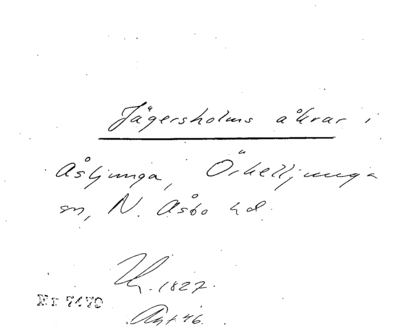 Jägersholms åkrar i
Åsljunga, Örkelljunga
sn, N. Åsbo hd.
1827.
Nr 7470